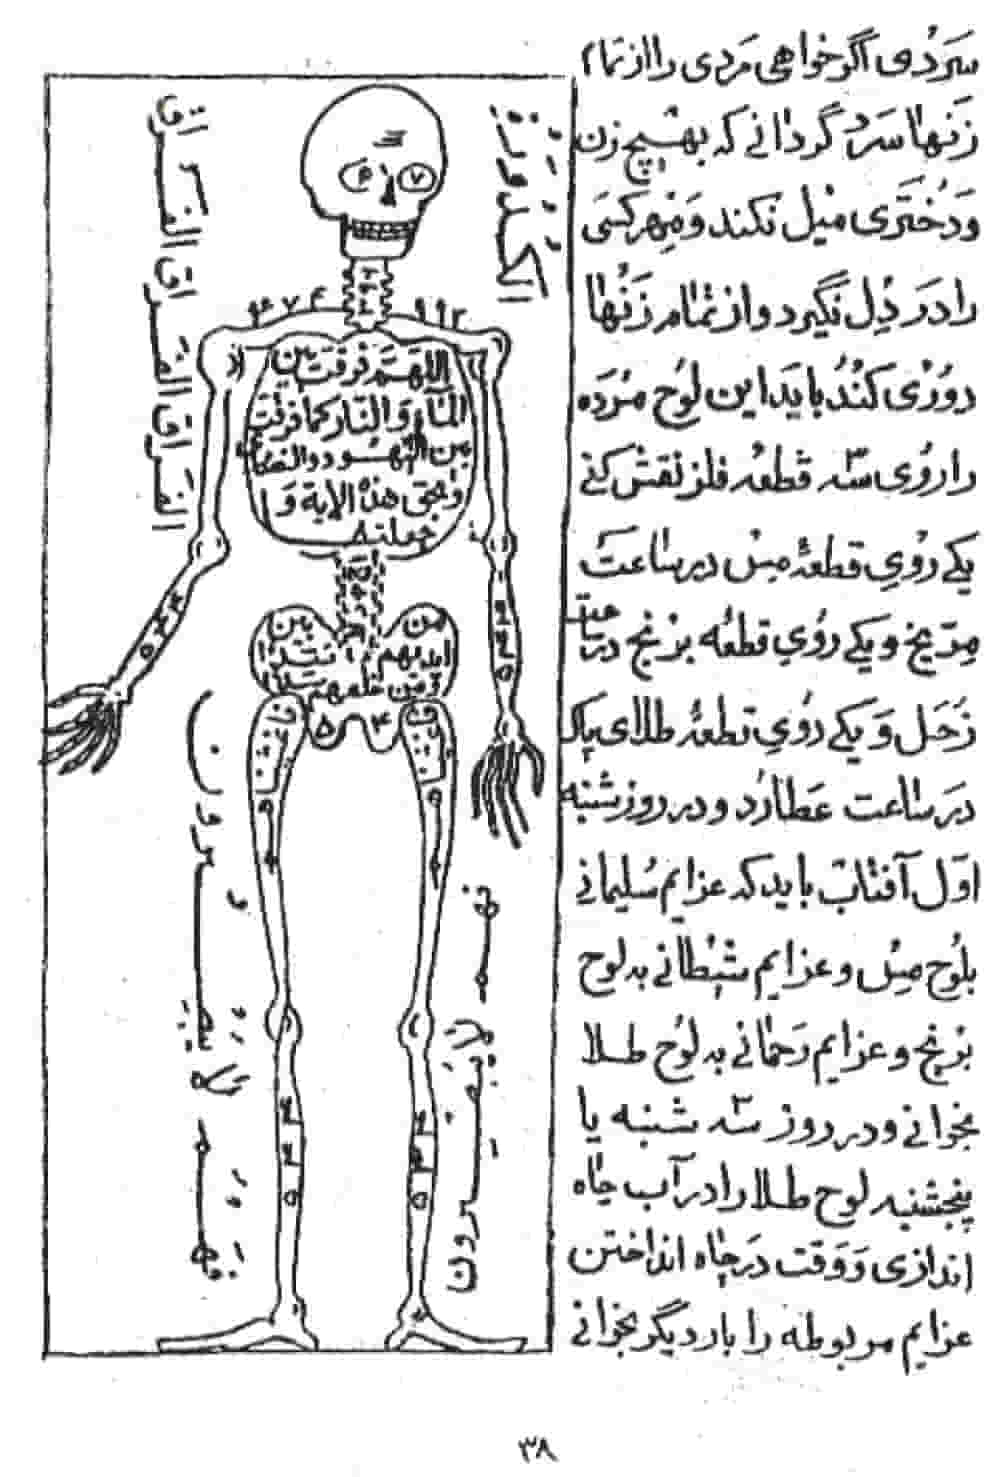 سَردُی اگر خواهی مَردی را از تمام
زَنها سَرد گردانے که بهیچ زن
وَدُختَری میل نکند وَمِهر کسَی
را دَر دِل نگیرد و از تمام زَنها
دوری کنُد باید این لوُح مُرَده
را روُی سّه قطعُه فلز نقش کنے
یکے روُیِ قطعۀ مِس در ساعَت
مِرّیخ و یکے روُیِ قطعُه برنج در ساعت
زُحَل وَ یکے روُیِ قطعۀ طلای پاک
دَر ساعت عَطارُد و در روز شنبه
اوّل آفتاب باید که عزایم سُلیمانے
بلوُح مِس و عزایم شیطانے به لوح
برنج و عزایم رَحمانے به لوُح طلا
بخوانے و در روز سّه شنبه یا
پنجشنبه لوح طلا را در آب چاه
اندازی وَ وَقت دَر چاه انداختن
عزایم مربوطه را بار دیگر بخوانے
الکدورة
الفراق الفراق الفراق
۶ ۷
۶ ۷ ۴
۹ ۹ ۲
اللهمَّ فرقت بین
المآء وَ النّار کما فرقت
بین الیَهود و النصا
وبحق هذه الایة وَ
جعلنا
من بین
ایدیهم سدًّا
ومن خلفهم سدًّا
۵ ۴
فاغشینا
هم
فهم لا یبصرون
فهم لا یبصرون
۳۸